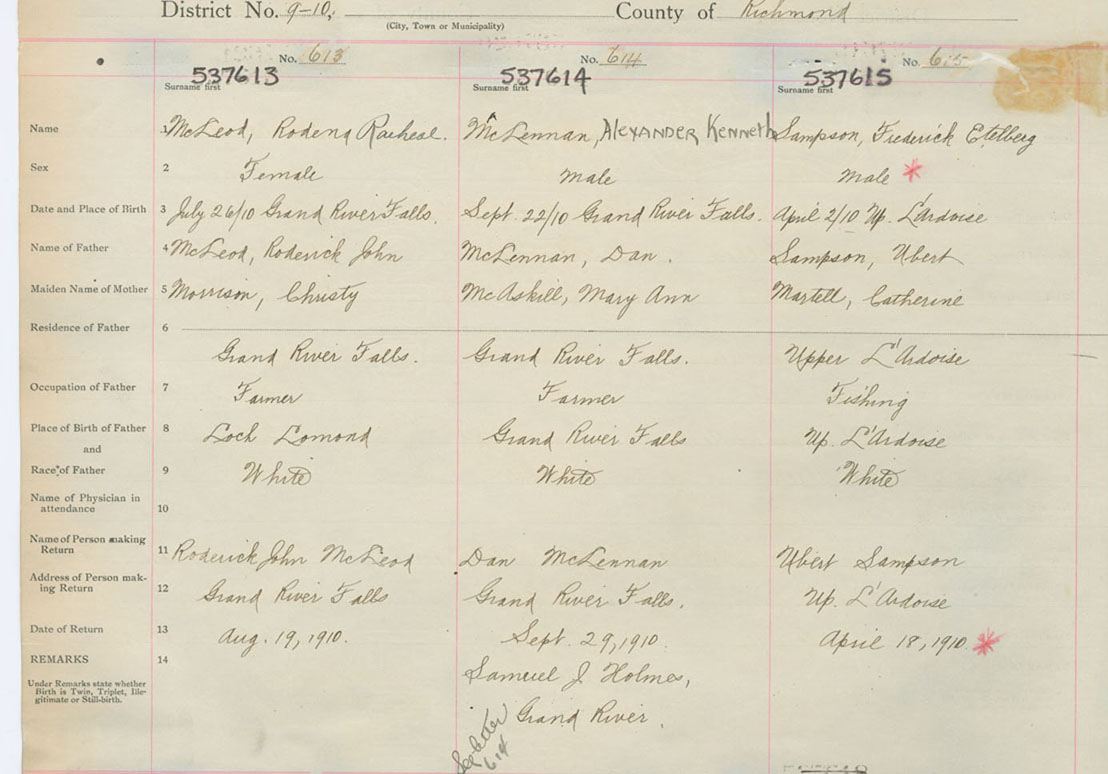 District No. 9-10, County of Richmond
(City, Town or Municipality)
No. 613 No. 614 No. 615
537613 537614 537615
Surname first Surname first Surname first
Name 1 McLeod, Rodena Racheal. McLennan, Alexander Kenneth Sampson, Frederick Etelberg
Sex 2 Female Male Male *
Date and Place of Birth 3 July 26/10 Grand River Falls. Sept. 22/10 Grand River Falls. April 2/10 Up. L'Ardoise
Name of Father 4 McLeod, Roderick John McLennan, Dan. Sampson, Ubert
Maiden Name of Mother 5 Morrison, Christy McAskill, Mary Ann Martell, Catherine
Residence of Father 6
Grand River Falls. Grand River Falls. Upper L'Ardoise
Occupation of Father 7 Farmer Farmer Fishing
Place of Birth of Father 8 Loch Lomond Grand River Falls Up. L'Ardoise
and
Race of Father 9 White White White
Name of Physician in
attendance 10
Name of Person making
Return 11 Roderick John McLeod Dan McLennan Ubert Sampson
Address of Person mak-
ing Return 12 Grand River Falls Grand River Falls. Up. L'Ardoise
Date of Return 13 Aug. 19, 1910. Sept. 29, 1910. April 18, 1910. *
REMARKS 14 Samuel J Holmes,
Under Remarks state whether
Birth is Twin, Triplet, Ille-
gitimate or Still-birth.
Grand River.
See letter
614